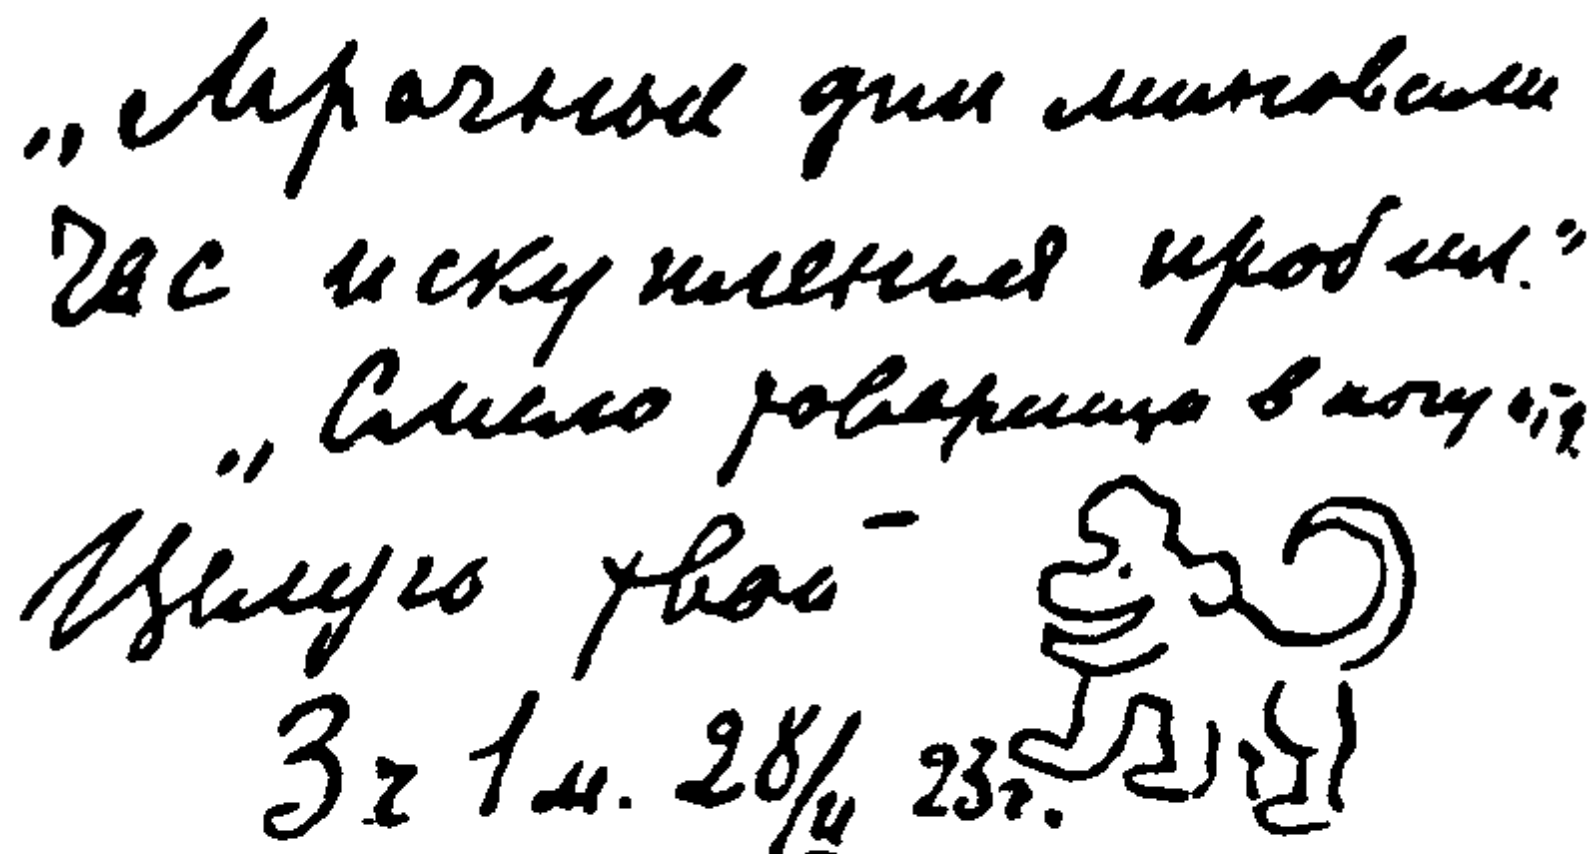 „Мрачные дни миновали
Час искупленья пробил."
„Смело товарищи в ногу и т.д.
Целую твой –
3 ч 1 м. 28/II 23 г.